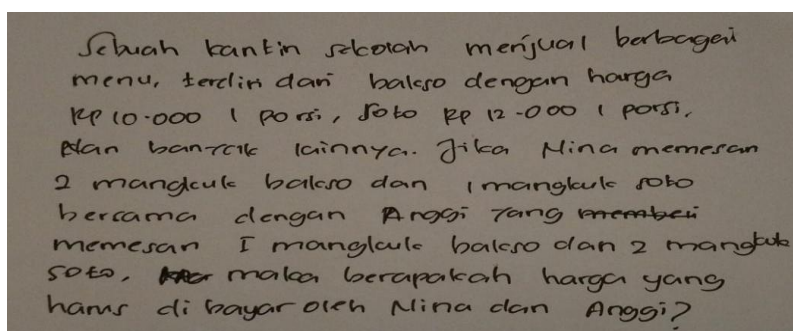 Sebuah kantin sekolah menjual berbagai
menu, terdiri dari bakso dengan harga
Rp 10.000 1 porsi, Soto Rp 12.000 1 porsi,
dan banyak lainnya. Jika Nina memesan
2 mangkuk bakso dan 1 mangkuk soto
bersama dengan Anggi yang
memesan 1 mangkuk bakso dan 2 mangkuk
soto, maka berapakah harga yang
harus di bayar oleh Nina dan Anggi?